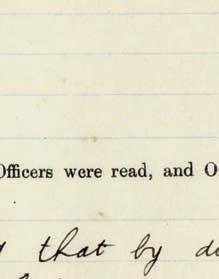 Officers were read, and O
that by d